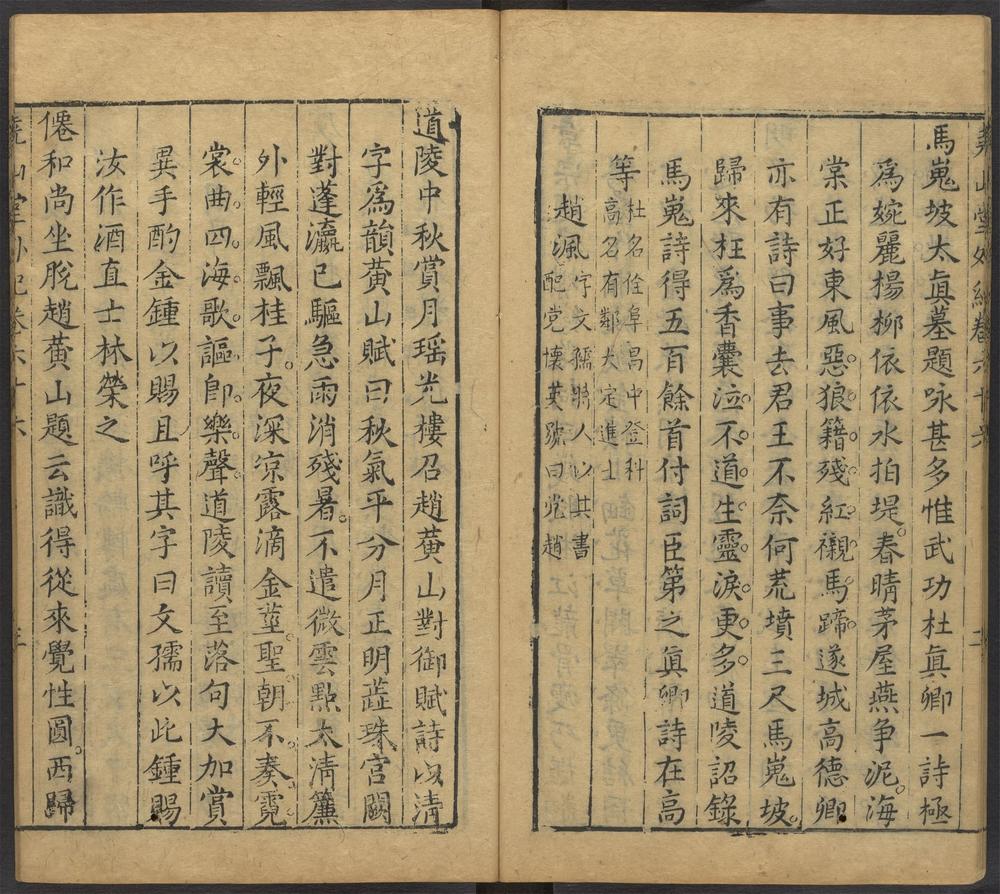 堯山堂外紀卷六十六
二
馬嵬坡太眞墓題咏甚多惟武功杜眞卿一詩極
爲婉麗楊柳依依水拍堤春晴茅屋燕争泥海
棠正好東風惡狼籍殘紅襯馬蹄遂城高德卿
亦有詩曰事去君王不奈何荒墳三尺馬嵬坡
歸來枉爲香囊泣不道生靈淚更多道陵詔錄
馬嵬詩得五百餘首付詞臣第之眞卿詩在高
等杜名佺阜昌中登科
高名有鄰大定進士
趙渢字文孺勝人以其書
配党懷英號曰党趙
道陵中秋賞月瑶光樓召趙黄山對御賦詩以清
字爲韻黄山賦曰秋氣平分月正明蘂珠宮闕
對蓬瀛已驅急雨消殘暑不遣微雲點太清簾
外輕風飄桂子夜深凉露滴金莖聖朝不奏霓
裳曲四海歌謳卽樂聲道陵讀至落句大加賞
異手酌金鍾以賜且呼其字曰文孺以此鍾賜
汝作酒直士林榮之
僊和尚坐脫趙黄山題云識得從來覺性圓西歸
堯山堂外紀卷六十六